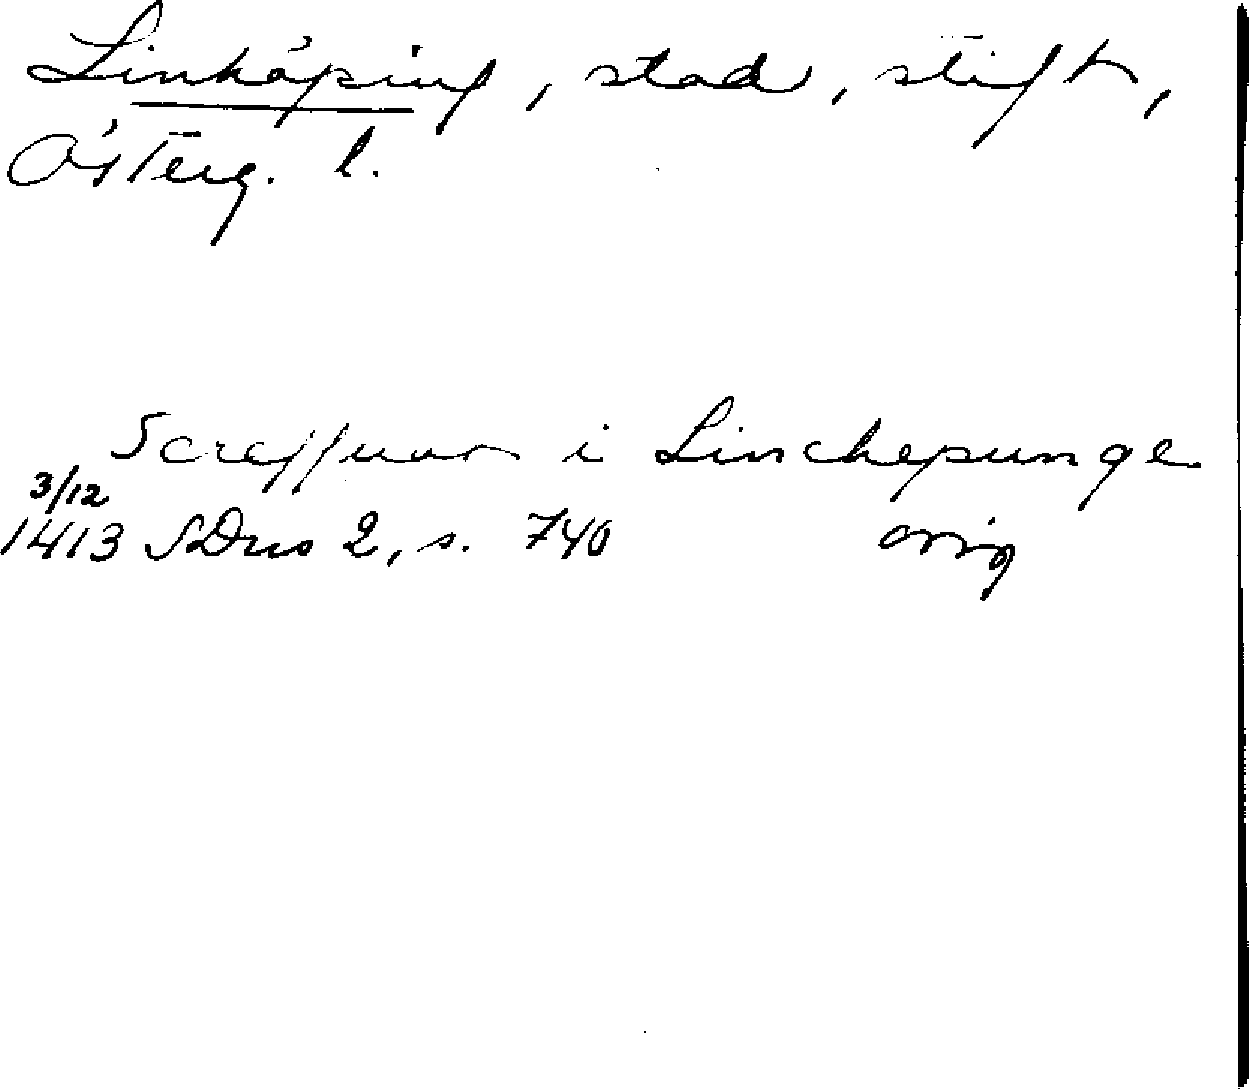 Linköping, stad, stift,
Österg. l.
Screffuuno i Linchepunge
3/12
1413 SDns 2, s. 740 orig